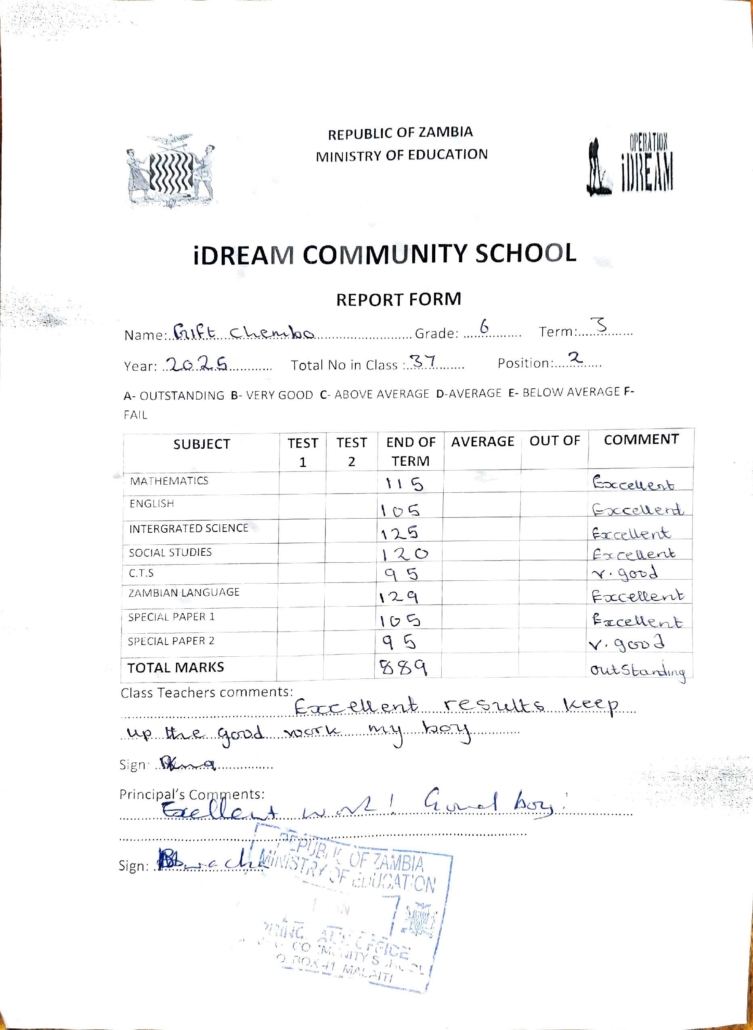 REPUBLIC OF ZAMBIA
MINISTRY OF EDUCATION
OPERATION
iDREAM
iDREAM COMMUNITY SCHOOL
REPORT FORM
Name: Gift Chembo Grade: 6 Term: 3
Year: 2025 Total No in Class : 37 Position: 2
A- OUTSTANDING B- VERY GOOD C- ABOVE AVERAGE D-AVERAGE E- BELOW AVERAGE F-
FAIL
SUBJECT TEST 1 TEST 2 END OF TERM AVERAGE OUT OF COMMENT
MATHEMATICS 115 Excellent
ENGLISH 105 Excellent
INTERGRATED SCIENCE 125 Excellent
SOCIAL STUDIES 120 Excellent
C.T.S 95 v. good
ZAMBIAN LANGUAGE 129 Excellent
SPECIAL PAPER 1 105 Excellent
SPECIAL PAPER 2 95 v. good
TOTAL MARKS 889 outstanding
Class Teachers comments:
Excellent results keep
up the good work my boy
Sign:
Principal's Comments:
Exellent work! Good boy!
Sign:
REPUBLIC OF ZAMBIA
MINISTRY OF EDUCATION
OFFICE
COMMUNITY SCHOOL